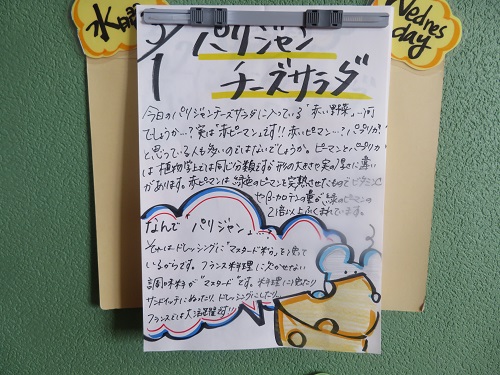 水曜
Wednesday
3/1
パリジャン
チーズサラダ
今日のパリジャンチーズサラダに入っている「赤い野菜」…何
でしょうか…？実は「赤ピーマン」です!!赤いピーマン…？パプリカ？
と思っている人も多いのではないでしょうか。ピーマンとパプリカ
は植物学上では同じ分類ですが形の大きさや実の厚さに違い
があります。赤ピーマンは緑色のピーマンを完熟させたものでビタミンC
やβ-カロテンの量が緑のピーマンの
2倍以上ふくまれています。
なんで「パリジャン」…
それはドレッシングに「マスタード粉」を使って
いるからです。フランス料理に欠かせない
調味料が"マスタード"です。料理に使ったり
サンドイッチにぬったり、ドレッシングにしたり…
フランスでは大活躍!!